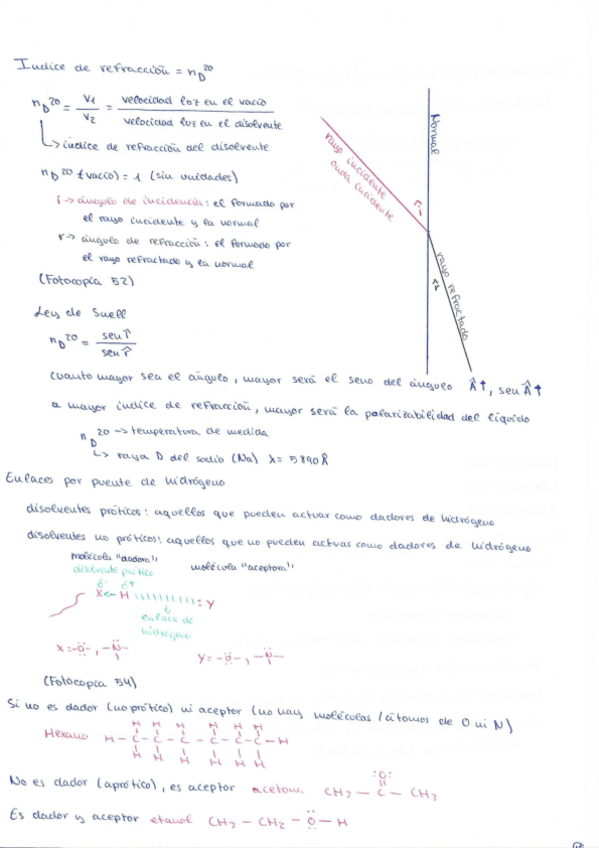 Indice de refracción = nD20
nD20 = v1/v2 = velocidad luz en el vacío / velocidad luz en el disolvente
↳ índice de refracción del disolvente
nD20 (vacío) = 1 (sin unidades)
î → ángulo de incidencia: el formado por
el rayo incidente y la normal
r → ángulo de refracción: el formado por
el rayo refractado y la normal
(Fotocopia 52)
Normal
rayo incidente
onda incidente
î
r̂
rayo refractado
Ley de Snell
nD20 = sen î / sen r̂
cuanto mayor sea el ángulo, mayor será el seno del ángulo Â↑, sen Â↑
a mayor indice de refracción, mayor será la polarizabilidad del líquido
nD20 → temperatura de medida
↳ raya D del sodio (Na) λ = 5890 Å
Enlaces por puente de hidrógeno
disolventes próticos: aquellos que pueden actuar como dadores de hidrógeno
disolventes no próticos: aquellos que no pueden actuar como dadores de hidrógeno
molécula "dadora"
disolvente prótico
molécula "aceptora"
δ- δ+
X ← H ||||||||||| :Y
enlace de
hidrógeno
X = -Ö-, -N̈-
Y = -Ö-, -N̈-
(Fotocopia 54)
Si no es dador (no prótico) ni aceptor (no hay moléculas / átomos de O ni N)
H H H H H H
Hexano H - C - C - C - C - C - C - H
H H H H H H
No es dador (aprótico), es aceptor acetona CH3 - C - CH3
:O:
Es dador y aceptor etanol CH3 - CH2 - Ö - H